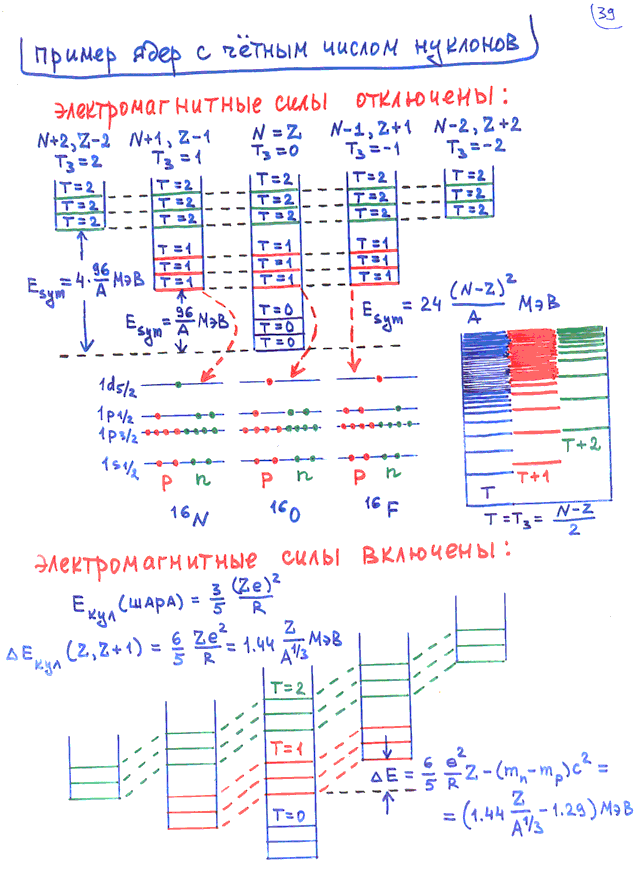 39
пример ядер с чётным числом нуклонов
электромагнитные силы отключены:
N+2, Z-2 N+1, Z-1 N=Z N-1, Z+1 N-2, Z+2
T₃=2 T₃=1 T₃=0 T₃=-1 T₃=-2
T=2 T=2 T=2 T=2 T=2
T=2 T=2 T=2 T=2 T=2
T=2 T=2 T=2 T=2 T=2
T=1 T=1 T=1
T=1 T=1 T=1
T=1 T=1 T=1
E_sym = 4·96/A МэВ
E_sym = 96/A МэВ
E_sym = 24 (N-Z)²/A МэВ
T=0
T=0
T=0
1d5/2
1p1/2
1p3/2
1s1/2
p n p n p n
¹⁶N ¹⁶O ¹⁶F
T T+1 T+2
T=T₃= (N-Z)/2
электромагнитные силы включены:
E_кул (шара) = 3/5 (Ze)²/R
ΔE_кул (Z, Z+1) = 6/5 Ze²/R = 1.44 Z/A^1/3 МэВ
T=2
T=1
T=0
ΔE = 6/5 e²/R Z - (m_n - m_p)c² =
= (1.44 Z/A^1/3 - 1.29) МэВ